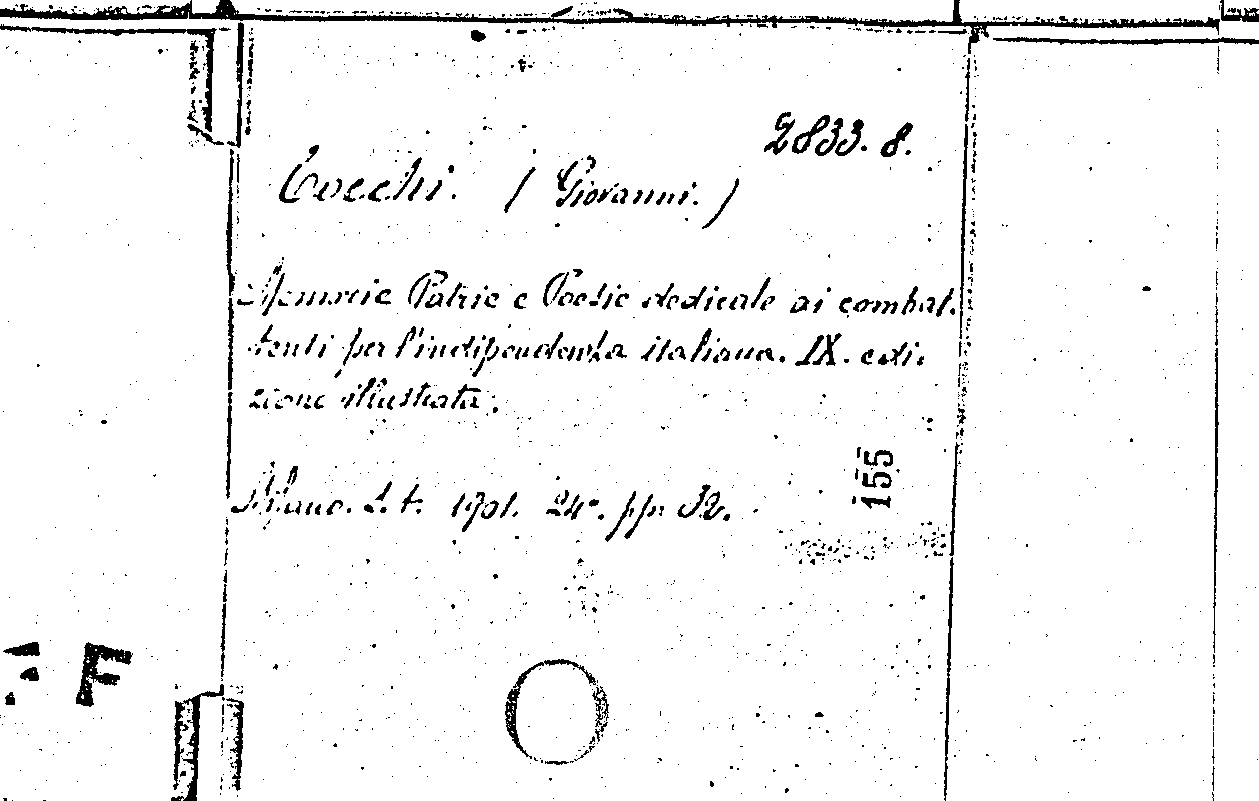 2833. 8.
Tocchi. (Giovanni.)
Memorie Patrie e Poesie dedicate ai combat.
tenti per l'indipendenza italiana. IX. edi.
zione illustrata.
Milano. S. t. 1901. 24°. pp. 32.
155
F